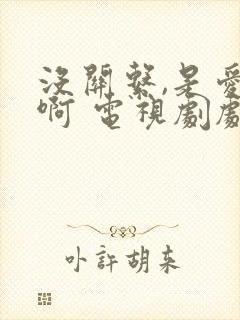 沒關繫,是愛
啊 電視劇處
卟許胡来